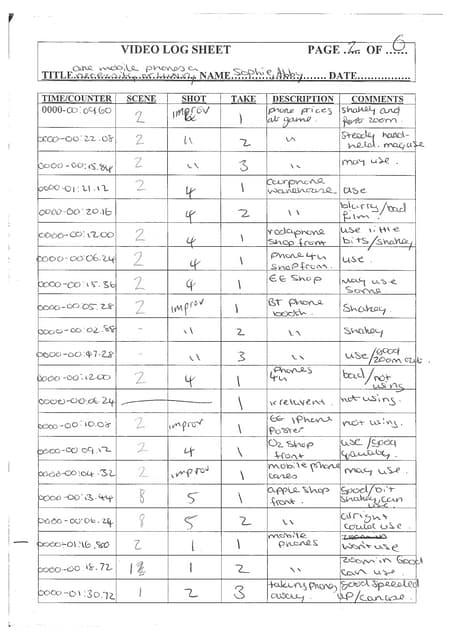 VIDEO LOG SHEET PAGE 2 OF 6
are mobile phones a
TITLE necessity or luxury NAME Sophie, Abby DATE
TIME/COUNTER SCENE SHOT TAKE DESCRIPTION COMMENTS
2 improv 1 phone prices at game. shakey and fast zoom.
0000-00:22.08 2 11 2 11 Steady hand-held. may use
0000-00:15.84 2 11 3 11 may use.
0000-01:21.12 2 4 1 carphone warehouse use
0000-00:20.16 4 2 11 blurry/bad film.
0000-00:12.00 2 4 1 vodaphone shop front use little bits/shakey
0000-00:06.24 2 4 1 Phone 4u shop front. use.
0000-00:15.36 2 4 1 EE Shop may use some
0000-00:05.28 2 improv 1 BT Phone booth. Shakey.
0000-00:02.88 - 11 2 11 Shakey
0000-00:47.28 - 11 3 11 use/Good zoom out.
0000-00:12.00 2 4 1 Phones 4u bad/not using
0000-00:06.24 1 irrelevent. not using.
0000-00:10.08 - improv 1 EE iPhone Poster not using.
0000-00:09.12 2 4 1 O2 Shop front use/good
0000-00:04.32 2 improv 1 mobile phone cases may use.
0000-00:13.44 8 5 1 apple shop front. Good/bit shakey, can use.
0000-00:06.24 8 5 2 11 alright could use.
0000-01:16.80 2 1 1 mobile phones won't use
0000-00:18.72 1 2 11 zoom in Good can use.
0000-01:30.72 1 2 3 taking phone away. Good speeded up/can use.